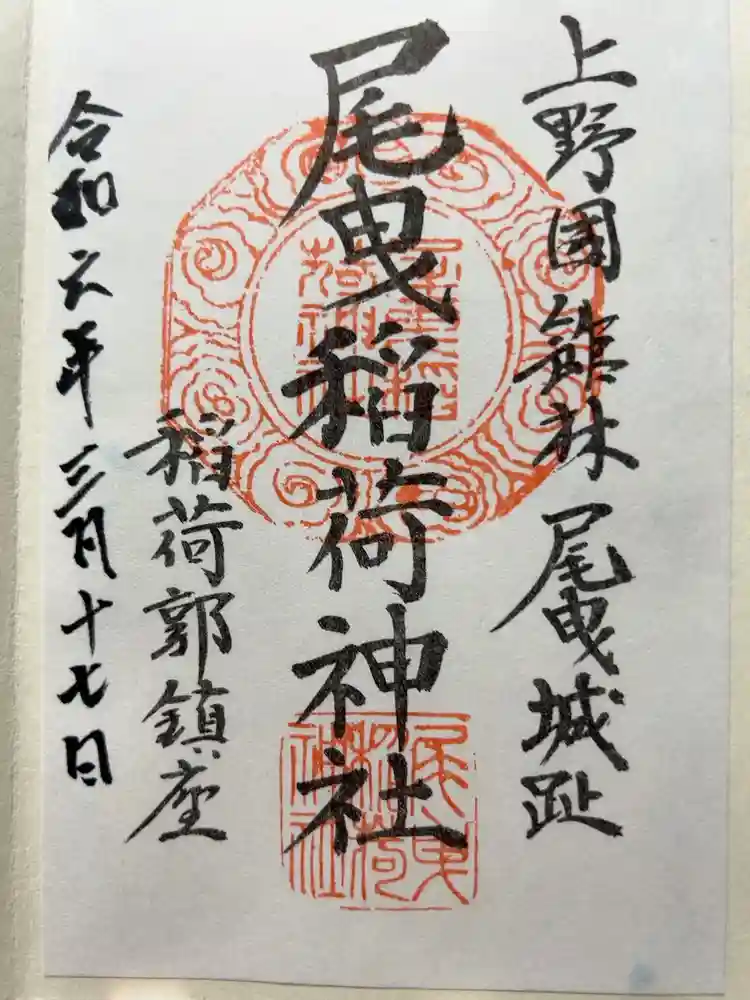 上野国館林尾曳城趾
尾曳稲荷神社
稲荷郭鎮座
令和六年三月十七日
尾曳稲荷神社